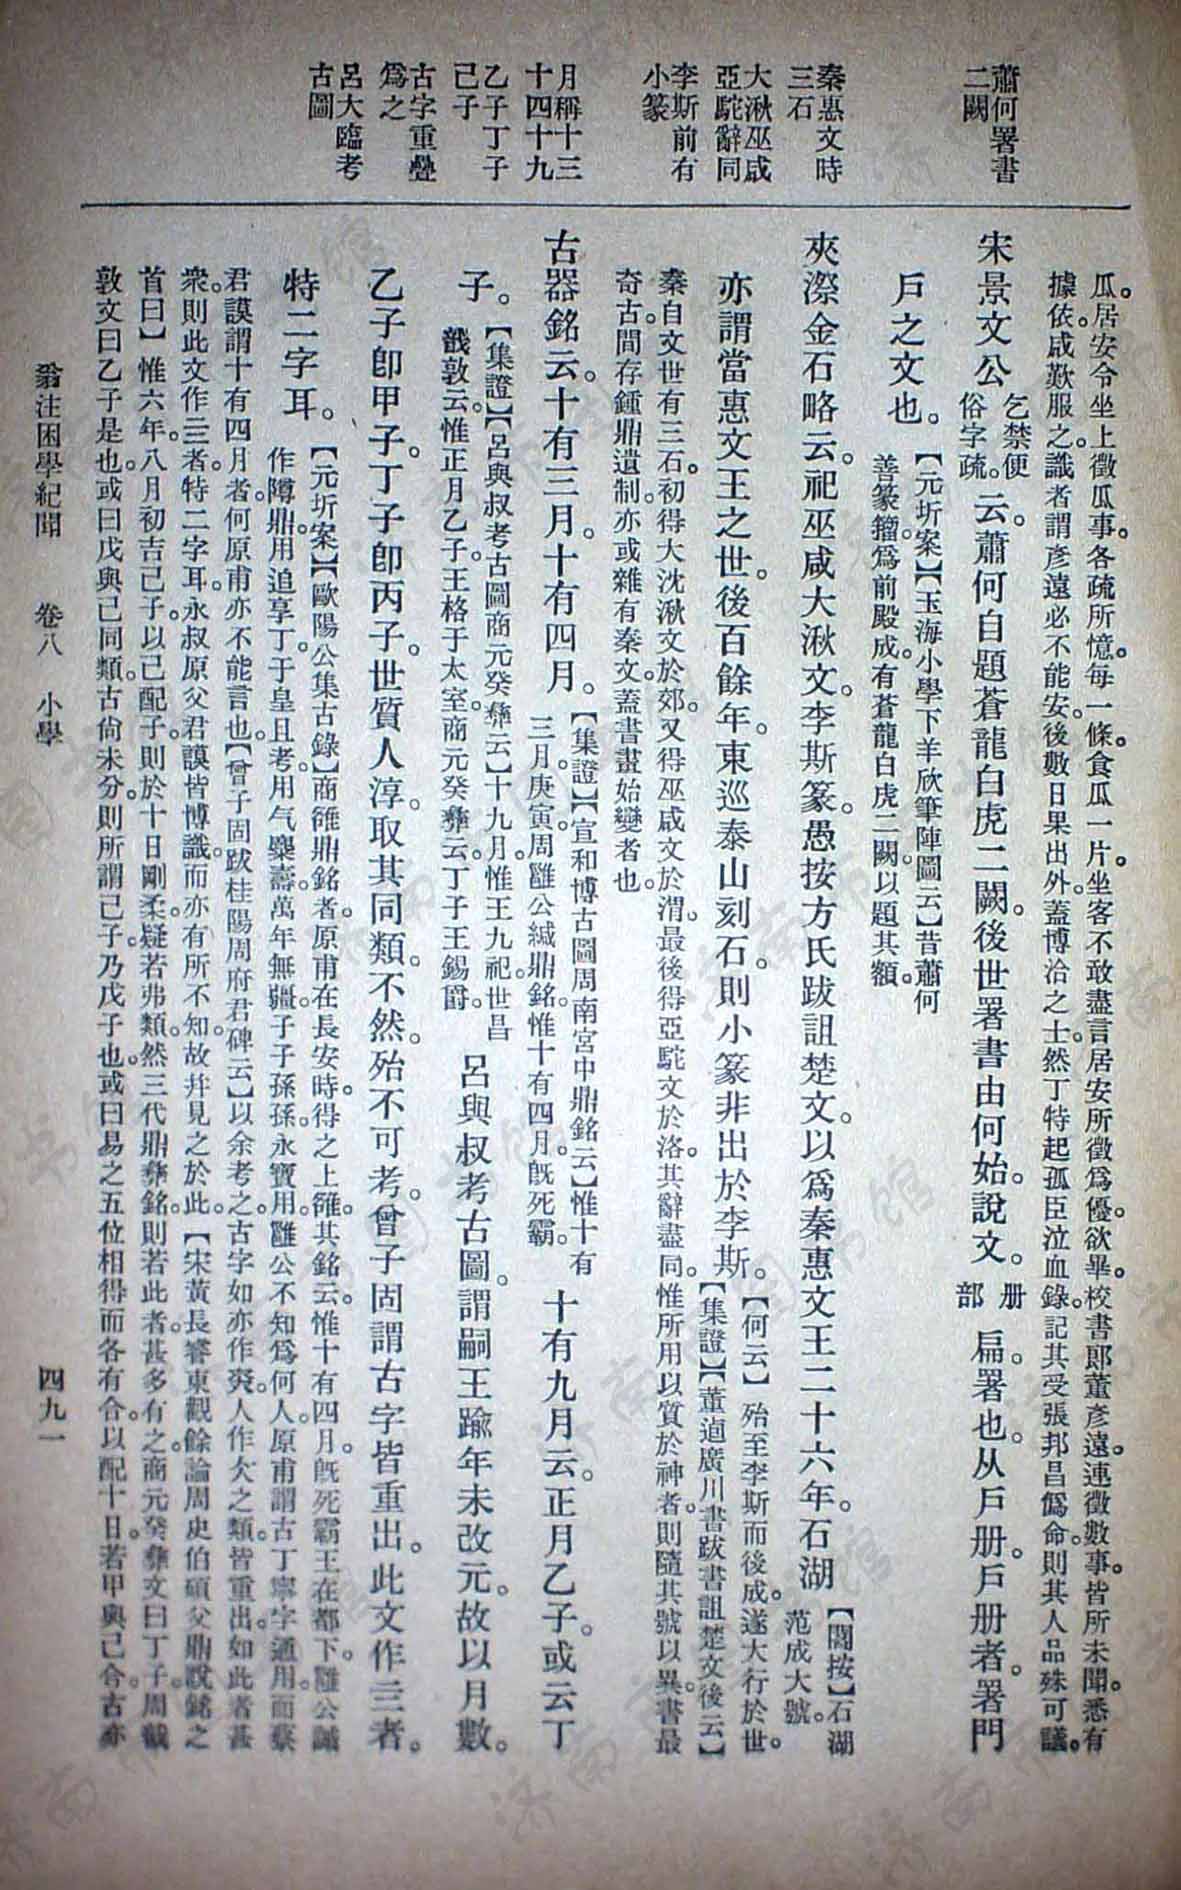 蕭何署書
二闕
秦惠文時
三石
大湫巫咸
亞駝辭同
李斯前有
小篆
月稱十三
十四十九
乙子丁子
己子
古字重疊
爲之
呂大臨考
古圖
瓜。居安令坐上徵瓜事。各疏所憶。每一條食瓜一片。坐客不敢盡言居安所徵爲優。欲畢。校書郞董彥遠。連徵數事。皆所未聞。悉有
據依。咸歎服之。識者謂彥遠必不能安。後數日果出外。蓋博洽之士。然丁特起孤臣泣血錄。記其受張邦昌僞命。則其人品殊可議。
宋景文公
乞禁便
俗字疏。
云。蕭何自題蒼龍白虎二闕。後世署書由何始。說文。
册
部
扁。署也。从戶册。戶册者。署門
戶之文也。
【元圻案】【玉海小學下羊欣筆陣圖云】昔蕭何
善篆籀。爲前殿成。有蒼龍白虎二闕。以題其額。
夾漈金石略云。祀巫咸大湫文。李斯篆。愚按方氏跋詛楚文。以爲秦惠文王二十六年。石湖
【閻按】石湖
范成大號。
亦謂當惠文王之世。後百餘年。東巡泰山刻石。則小篆非出於李斯。
【何云】殆至李斯而後成。遂大行於世。
【集證】【董逌廣川書跋書詛楚文後云】
秦自文世有三石。初得大沈湫文於郊。又得巫咸文於渭。最後得亞駝文於洛。其辭盡同。惟所用以質於神者。則隨其號以異。書最
奇古。間存鍾鼎遺制。亦或雜有秦文。蓋書畫始變者也。
古器銘云。十有三月。十有四月。
【集證】【宣和博古圖周南宮中鼎銘云】惟十有
三月庚寅。周雝公緘鼎銘。惟十有四月。旣死霸。
十有九月云。正月乙子。或云丁
子。
【集證】【呂與叔考古圖商元癸彝云】十九月。惟王九祀。世昌
戩敦云。惟正月乙子。王格于太室。商元癸彝云。丁子王錫爵。
呂與叔考古圖。謂嗣王踰年未改元。故以月數。
乙子卽甲子。丁子卽丙子。世質人淳。取其同類。不然。殆不可考。曾子固謂古字皆重出。此文作三者。
特二字耳。
【元圻案】【歐陽公集古錄】商雒鼎銘者。原甫在長安時。得之上雒。其銘云。惟十有四月。旣死霸王在都下。雝公緘
作障鼎。用追享丁。于皇且考。用气麋壽。萬年無疆。子子孫孫。永寶用。雝公不知爲何人。原甫謂古丁寧字通用。而蔡
君謨謂十有四月者何原甫亦不能言也。【曾子固跋桂陽周府君碑云】以余考之。古字如亦作亦亦。人作仌之類。皆重出。如此者甚
衆。則此文作三三者。特二字耳。永叔原父君謨皆博識。而亦有所不知。故幷見之於此。【宋黃長睿東觀餘論周史伯碩父鼎說銘之
首曰】惟六年。八月初吉己子。以己配子。則於十日剛柔。疑若弗類。然三代鼎彝銘。則若此者。甚多有之。商元癸彝文曰丁子。周戩
敦文曰乙子是也。或曰戊與己同類。古尙未分。則所謂己子。乃戊子也。或曰易之五位相得而各有合。以配十日。若甲與己合。古亦
翁注困學紀聞　卷八　小學　四九一